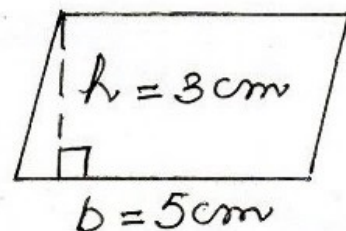 h = 3cm
b = 5cm